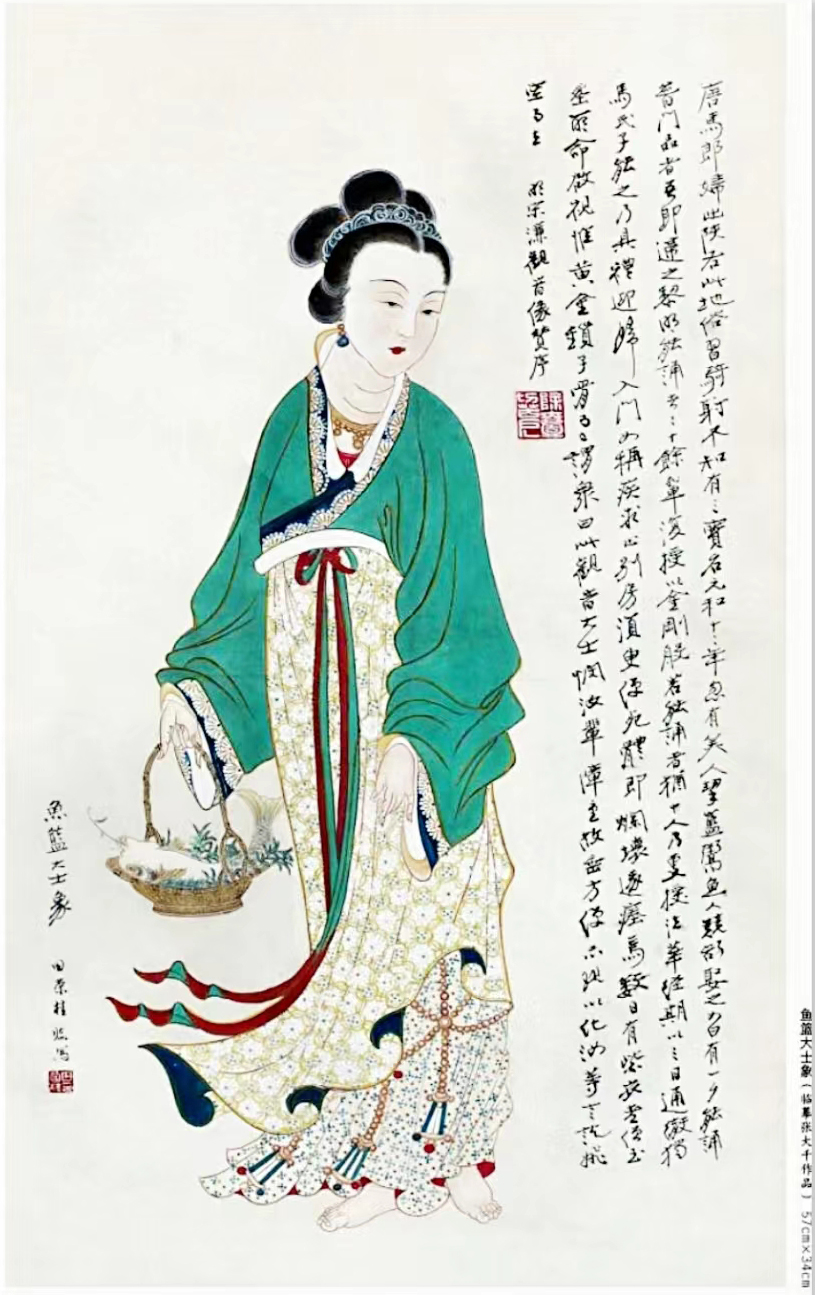 唐馬郎婦出陝右此地俗習騎射不知有三寶名元和十二年忽有美人挈籃鬻魚人競欲娶之女曰有一夕能誦
普門品者吾即適之黎明能誦者二十餘輩復授以金剛般若能誦者猶十人乃更授法華經期以三日通徹獨
馬氏子能之乃具禮迎歸入門女稱疾求止別房須臾便死體即爛壞遂瘞焉數日有紫衣老僧至
瘞所命啟視惟黃金鎖子骨謂眾曰此觀音大士憫汝輩障重故垂方便示現以化汝等言訖飛
空而去 明宋濂觀音像贊序
魚籃大士象
田榮桂臨寫
鱼篮大士象(临摹张大千作品) 57cm×34cm